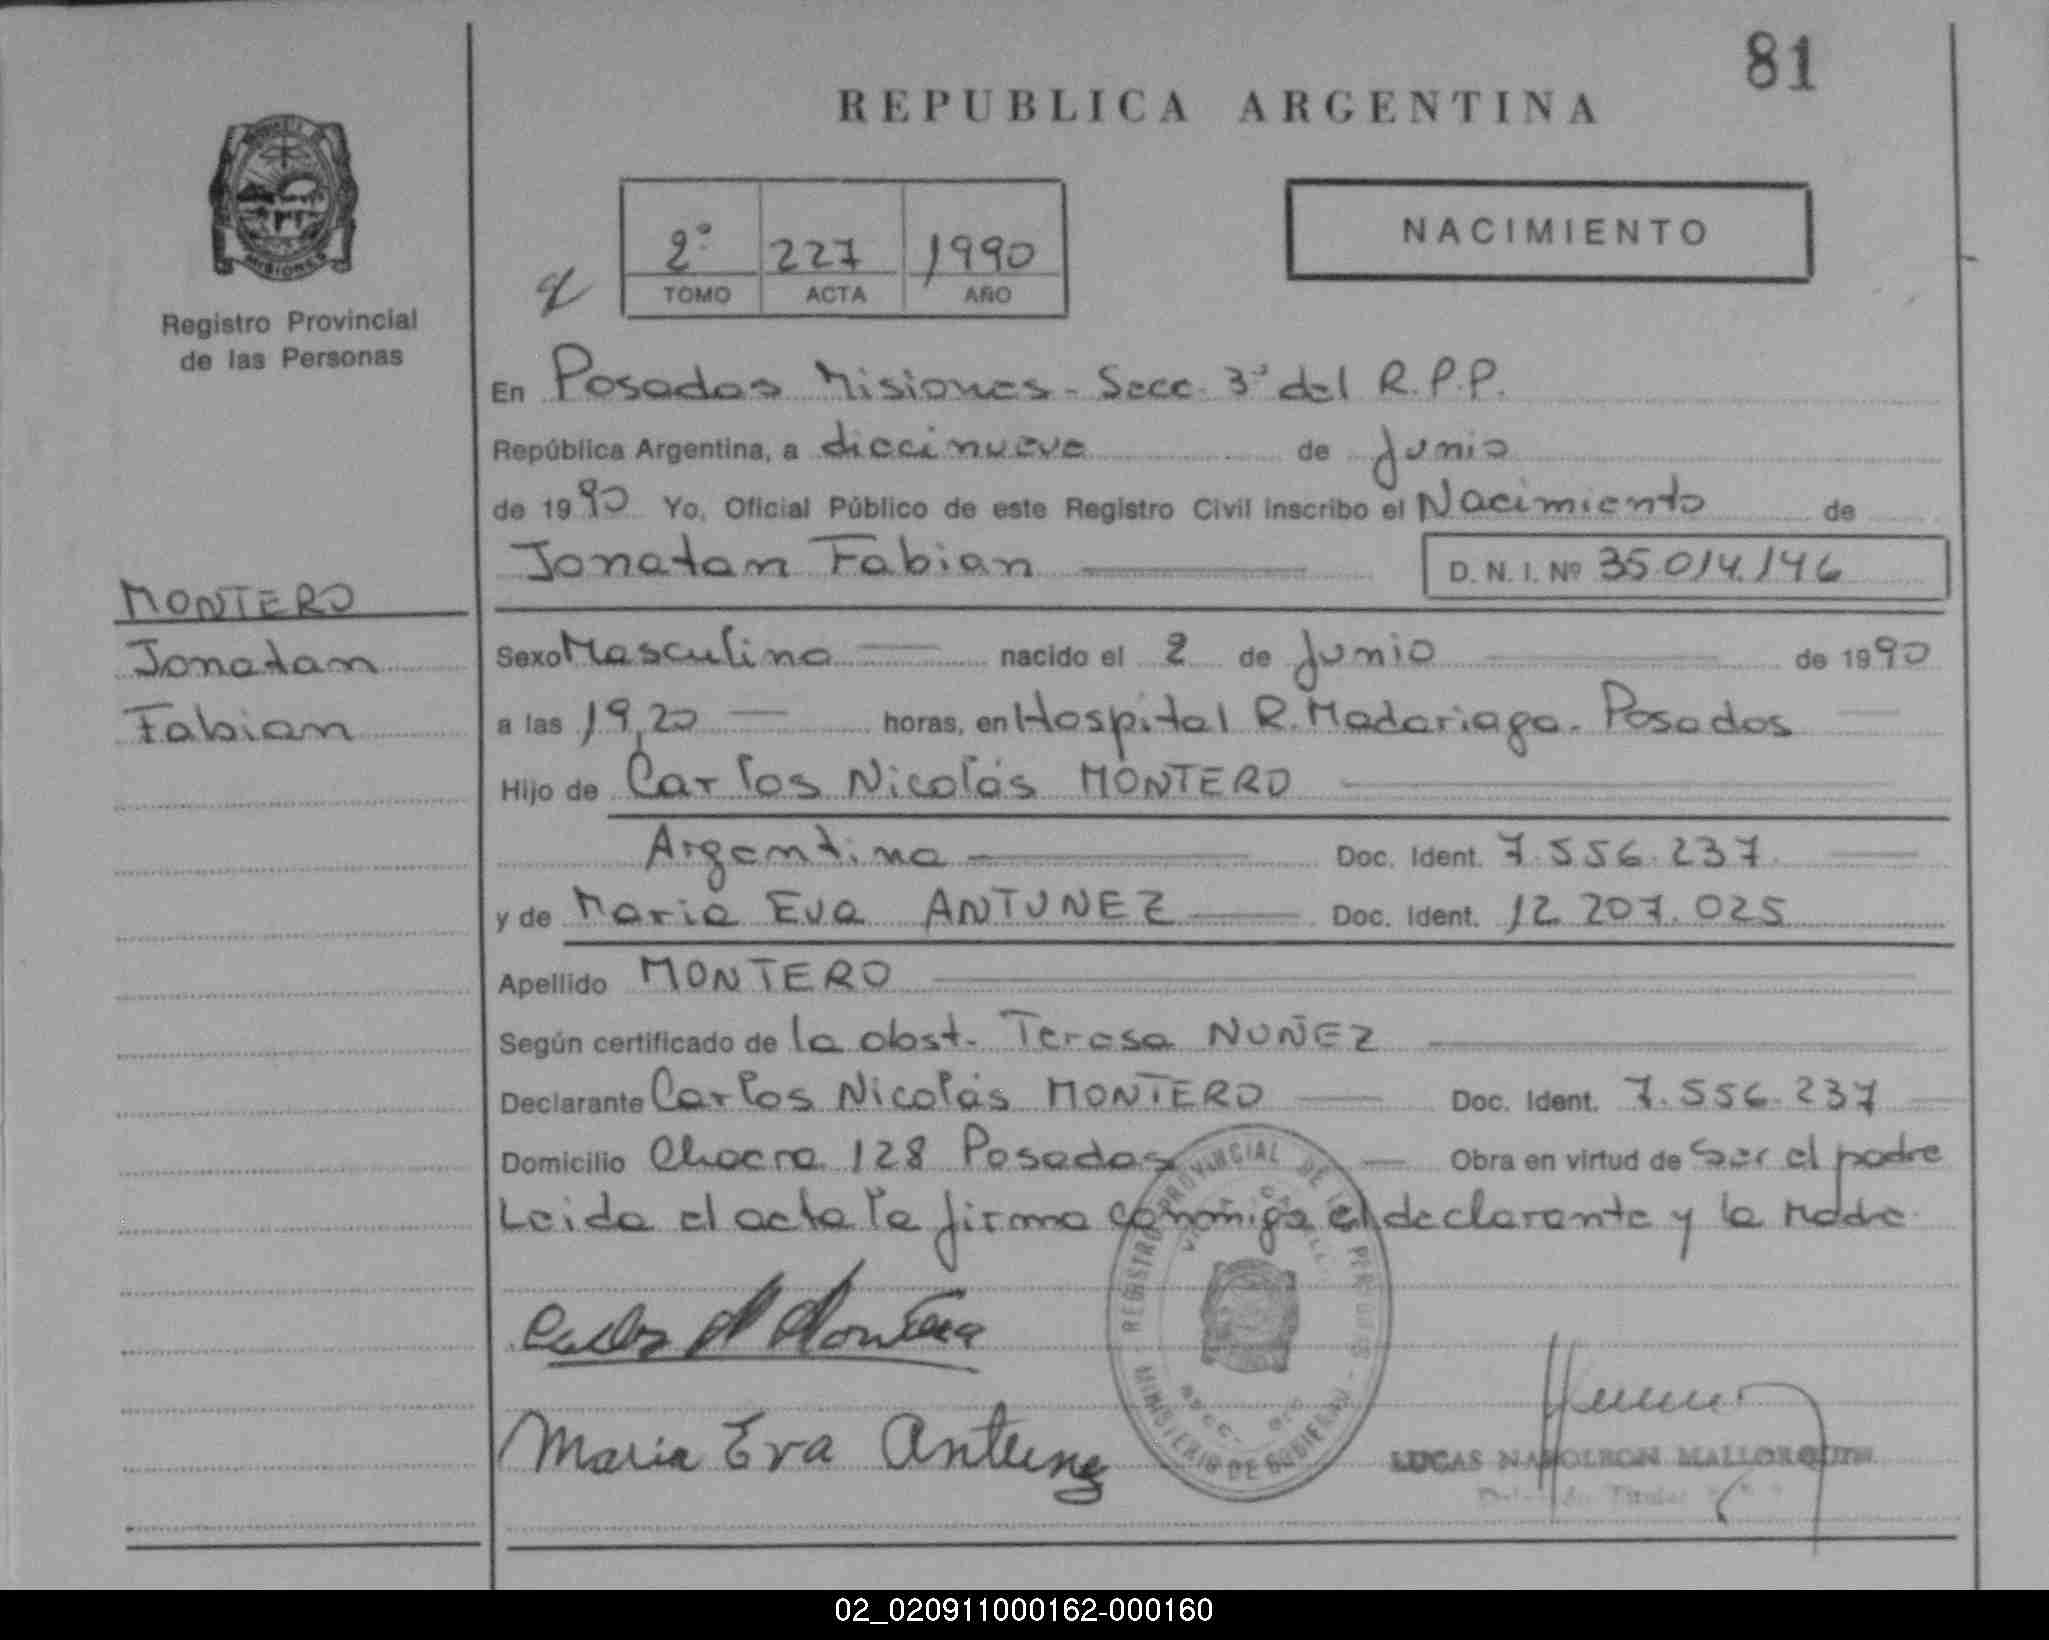 81
REPUBLICA ARGENTINA
MISIONES
Registro Provincial
de las Personas
2º 227 1990
TOMO ACTA AÑO
NACIMIENTO
En Posadas Misiones - Secc. 3ª del R.P.P.
República Argentina, a diecinueve de Junio
de 1990 Yo, Oficial Público de este Registro Civil inscribo el Nacimiento de
Jonatan Fabian D.N.I. Nº 35.014.146
MONTERO
Jonatan
Fabian
Sexo Masculino nacido el 2 de Junio de 1990
a las 19,20 horas, en Hospital R. Madariaga. Posadas
Hijo de Carlos Nicolás MONTERO
Argentino Doc. Ident. 7.556.237
y de Maria Eva ANTUNEZ Doc. Ident. 12.207.025
Apellido MONTERO
Según certificado de la obst. Teresa NUÑEZ
Declarante Carlos Nicolás MONTERO Doc. Ident. 7.556.237
Domicilio Chacra 128 Posadas Obra en virtud de ser el padre
Leida el acta la firma conmigo el declarante y la Madre
REGISTRO PROVINCIAL DE LAS PERSONAS - MINISTERIO DE GOBIERNO
Carlos N Montero
Maria Eva Antunez
LUCAS NAPOLEON MALLORQUIN
Titular
02_020911000162-000160